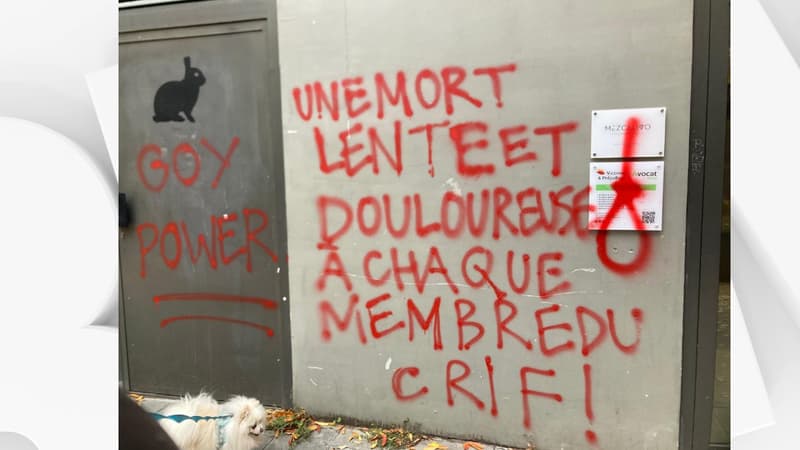 GOY
POWER.
UNE MORT
LENTE ET
DOULOUREUSE
À CHAQUE
MEMBRE DU
CRIF!